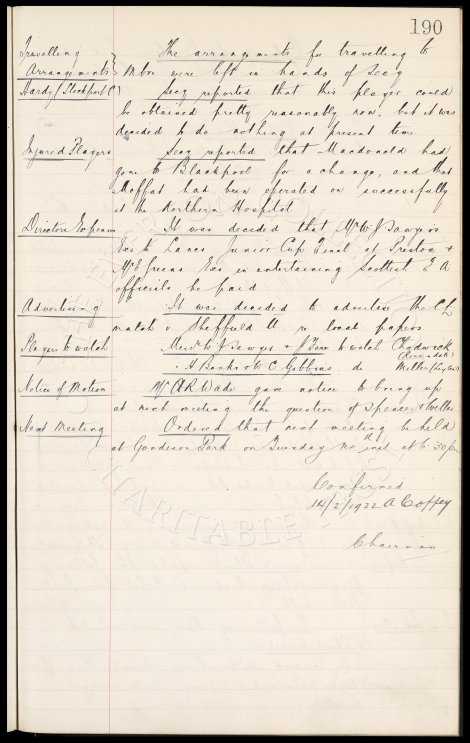 190
Travelling Arrangements
The arrangements for travelling to
Mbro were left in hands of Secy
Hardy (Stockport C)
Secy reported that this player could
be obtained pretty reasonably now, but it was
decided to do nothing at present time
Injured Players
Secy reported that Macdonald had
gone to Blackpool for a change, and that
Moffat had been operated on successfully
at the Northern Hospital
Directors Expenses
It was decided that Mr W J Sawyer
Exs to Lancs Junior Cup Final at Preston +
Mr Greens Exs in entertaining Scottish F A
officials be paid
Advertising
It was decided to advertise the C L
match v Sheffield U in local papers
Players to watch
Messrs W J Sawyer + to watch Chadwick
(Rossendale)
" A Banks + W C Gibbins do Miller
Notice of Motion
Mr A R Wade gave notice to bring up
at next meeting the question of Spencer + Weller
Next Meeting
Ordered that next meeting be held
at Goodison Park on Tuesday inst at 6.30 pm
Confirmed
14/2/1922 A Coffey
Chairman
CHARITABLE